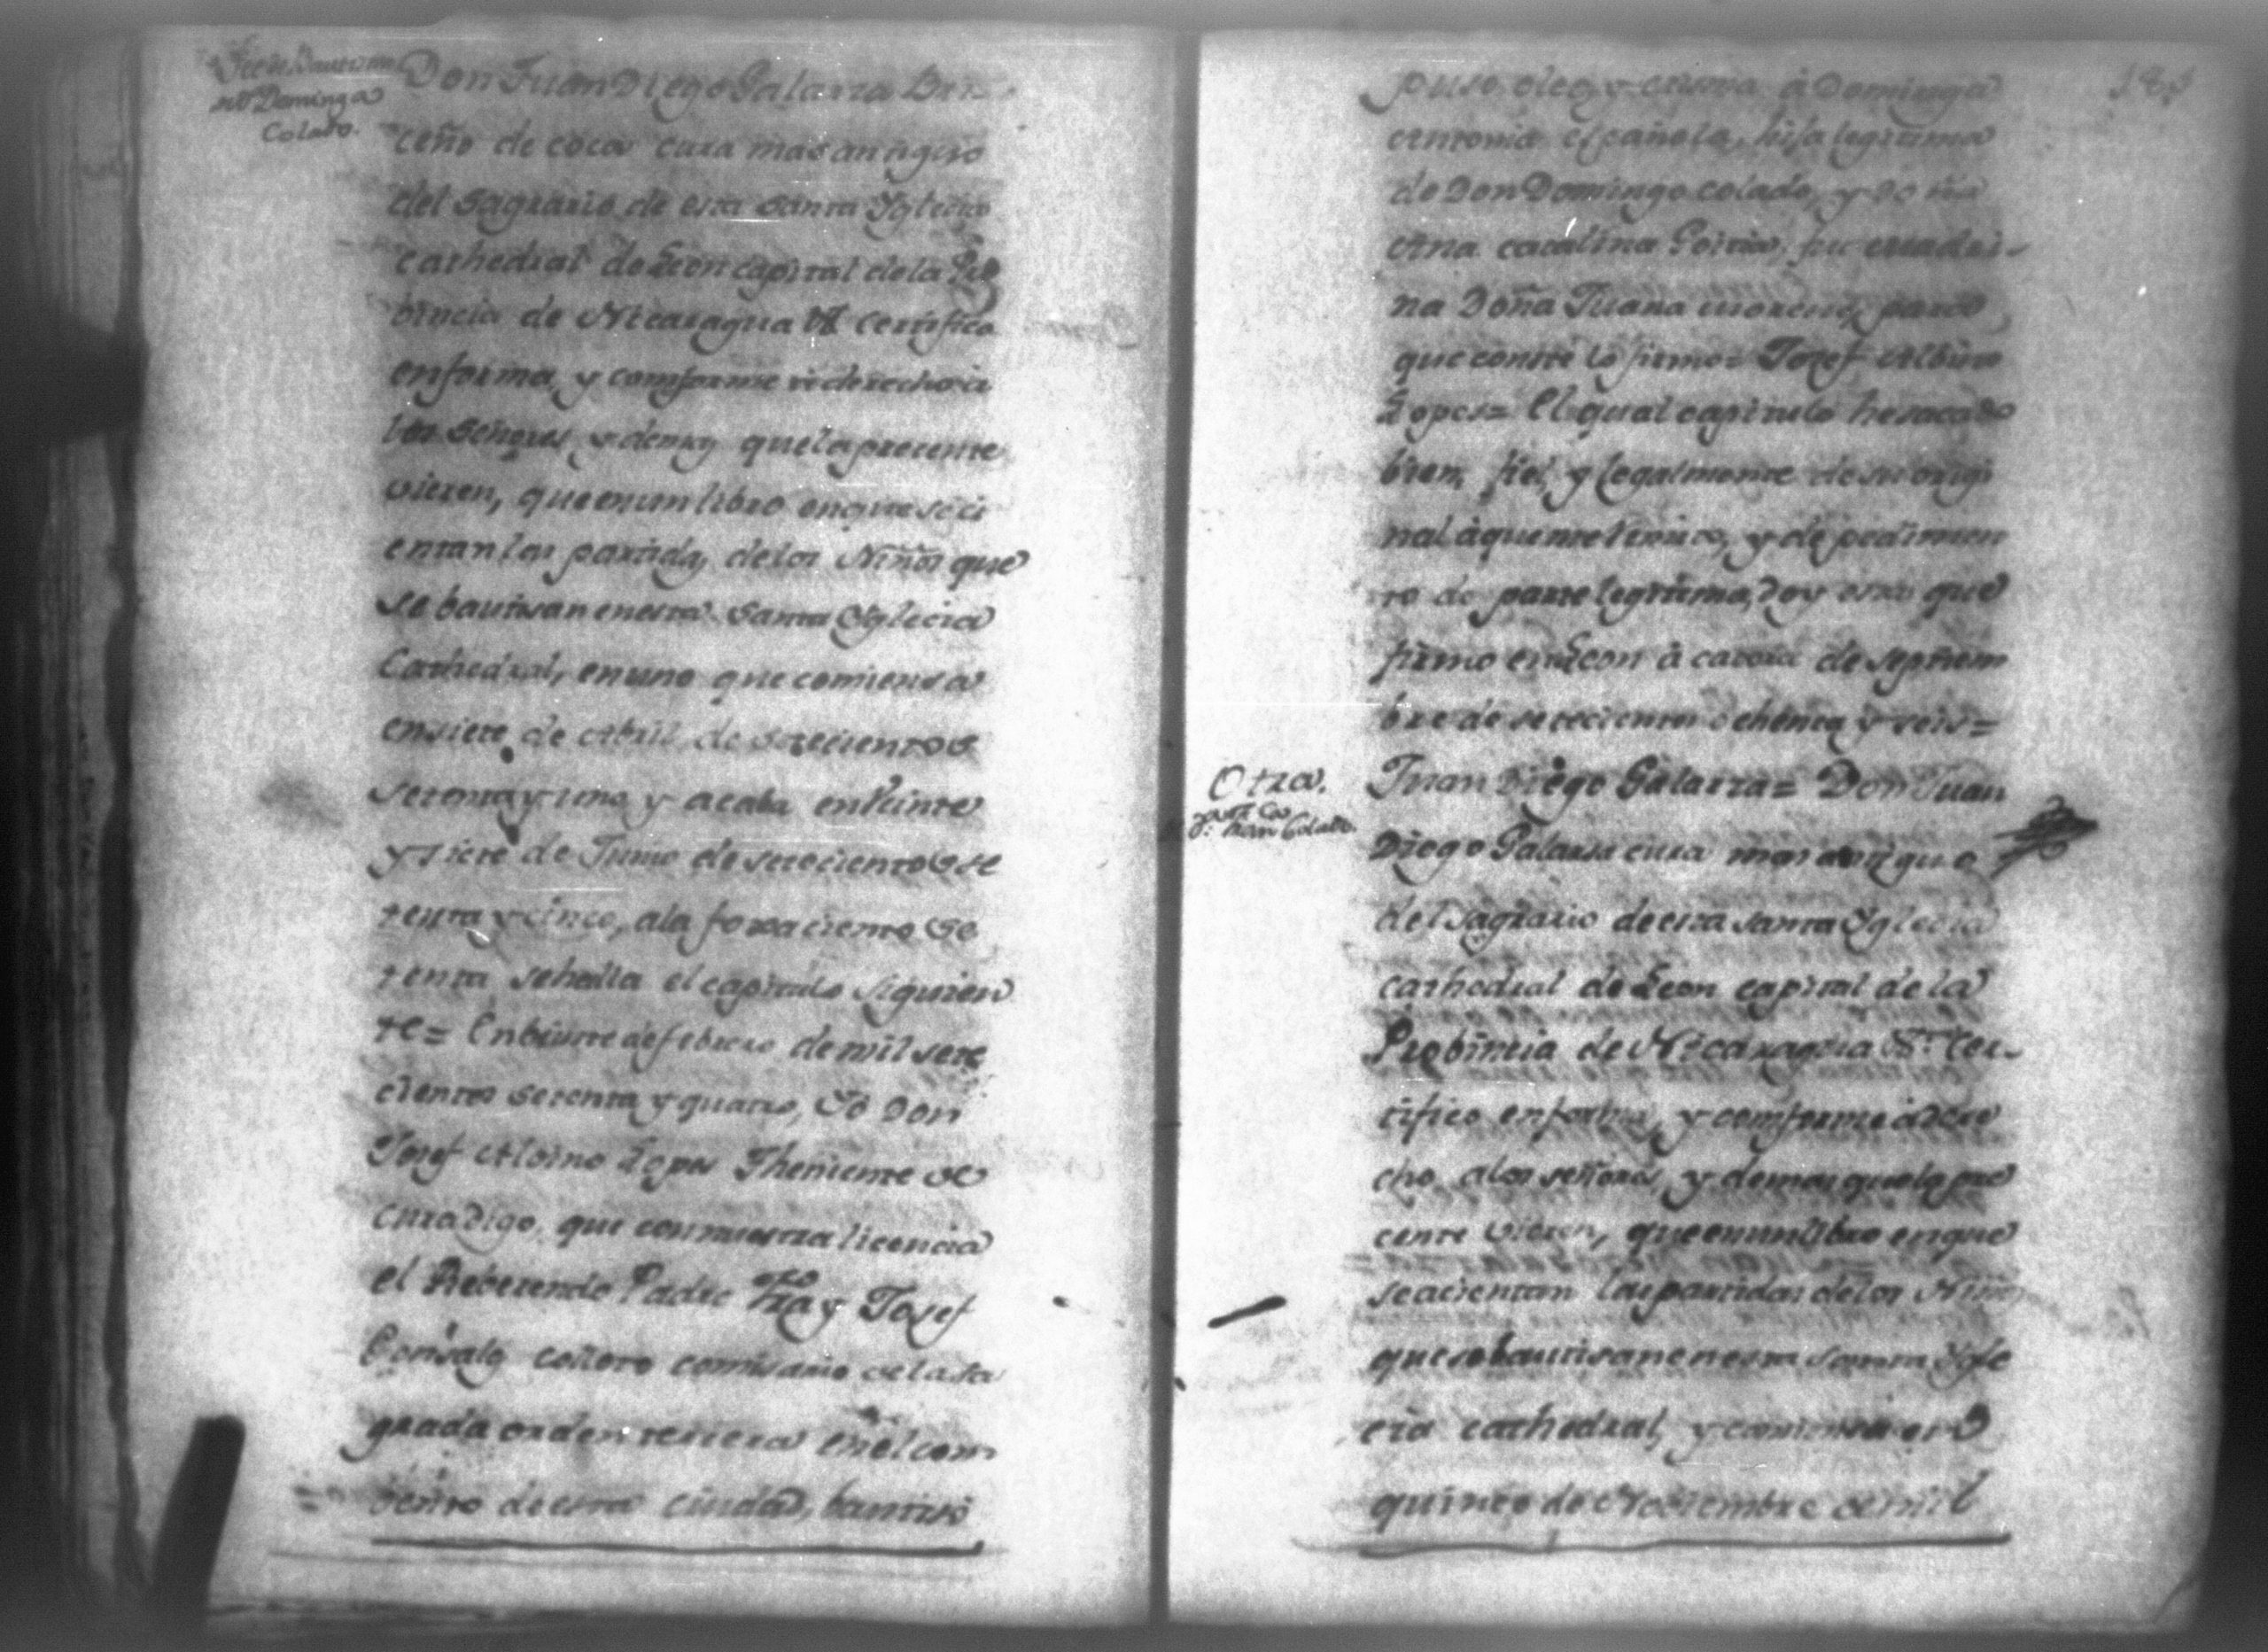 Dominga
Colado.
Don Juan Diego Galarza Bri-
ceño de coca cura mas antiguo
del Sagrario de esta Santa Yglecia
Cathedral de Leon capital dela Pro
bincia de Nicaragua Vª Certifico
enforma, y comforme à derecho à
los Señores, y demas que la precente
vieren, que en un libro en que se aci
entan las partidas delos Niños que
se bautisan en esta Santa Yglecia
Cathedral, en uno que comiensa
en siete de Abril de setecientos
setenta y uno y acaba en Veinte
y siete de Junio de setecientos se
tenta y cinco, ala foxa ciento se
tenta se halla el capitulo siguien
te= En beinte de febrero de mil sete
cientos setenta y quatro, Yo Don
Josef Albino Lopes Theniente de
Cura Digo, que con nuestra licencia
el Reberendo Padre Fray Josef
Gonsales comisario de la sa
grada orden tercera en el com
bento de esta Ciudad, bautisó
puso oleo, y crisma à Dominga
Antonia española, hija legitima
de Don Domingo colado, y Doña
Ana catalina su madri-
na Doña Juana moreno, para
que conste lo firmo= Josef Albino
Lopes= El qual capitulo he sacado
bien, fiel, y legalmente de su origi
nal à que me remito, y de pedimen
to de parte legitima, doy esta que
firmo en Leon à catorse de Septiem
bre de setecientos ochenta y seis=
Juan Diego Galarza= Don Juan
Otra.
Colado.
Diego Galarza cura mas antiguo
del Sagrario de esta Santa Yglecia
cathedral de Leon capital de la
Probincia de Nicaragua Vª Cer-
tifico enforma, y comforme à dere
cho à los señores, y demas que la pre
cente vieren, que en un libro en que
se acientan las partidas delos Niños
que se bautisan en esta santa Ygle
cia cathedral, y comiensa en
quince de Nobiembre de mil